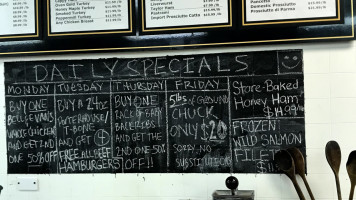 Honey Maple Turkey
Smoked Turkey
Peppermill Turkey
Any Chicken Breast
Liverwurst
Taylor Ham
Pastrami
Import Prosciutto Cotto
Pancetta
Domestic Prosciutto
Prosciutto di Parma
DAILY SPECIALS
MONDAY
BUY ONE
BELL & EVANS
WHOLE CHICKEN
AND GET 2ND
ONE 50% OFF
TUESDAY
BUY A 24oz
PORTERHOUSE/
T-BONE
AND GET
FREE ALL BEEF
HAMBURGERS
THURSDAY
BUY ONE
RACK OF BABY
BACK RIBS
AND GET THE
2ND ONE 50%
OFF!!
FRIDAY
5lbs of GROUND
CHUCK
ONLY $20
SORRY, NO
SUBSTITUTIONS
Store-Baked
Honey Ham
$14.99/lb
FROZEN
WILD SALMON
FILETS